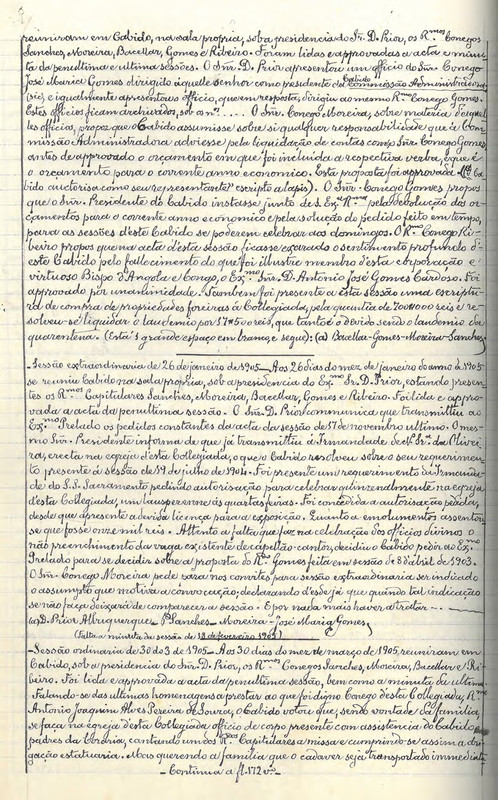 reuniram em Cabido, na sala propria, sob a presidencia do Sr. D. Prior, os R.mos Conegos
Sanches, Moreira, Bacellar, Gomes e Ribeiro. Foram lidas e approvadas a acta e minu-
ta da penultima e ultima sessões. O Snr. D. Prior apresentou um officio do Snr. Conego
José Maria Gomes dirigido áquelle senhor como presidente da Commissão Administra
e igualmente apresentou o officio, que em resposta, dirigiu ao mesmo R.mo Conego Gomes.
Estes officios ficam archivados, sob a n.º..... O Snr. Conego Moreira, sobre materia d'aquel-
les officios, propoz que o Cabido assumisse sobre si qualquer responsabilidade que á Com-
missão Administradora adviesse pela liquidação de contas com o Snr. Conego Gomes,
antes de approvado o orçamento em que foi incluida a respectiva verba, e que é
o orçamento para o corrente anno economico. Esta proposta foi approvada. (O Ca-
bido auctorisa como seu representante" escripto a lapis). O Snr. Conego Gomes propos
que o Snr. Presidente do Cabido instasse junto de S. Ex.ª R.ma pela devolução dos or-
çamentos para o corrente anno economico e pela solução do pedido feito em tempo,
para as sessões d'este Cabido se poderem celebrar aos domingos. O R.mo Conego Ri-
beiro propos que na acta d'esta sessão ficasse exarado o sentimento profundo d'
este Cabido pelo fallecimento do que foi illustre membro desta corporação e
virtuoso Bispo d'Angola e Congo, o Ex.mo Snr. D. Antonio José Gomes Cardoso. Foi
approvado por unanimidade. Tambem foi presente a esta sessão uma escriptu-
ra de compra de propriedades foreiras á Collegiada, pela quantia de 700$000 reis e re-
solveu-se liquidar o laudemio por 17$500 reis, que tanto é o devido sendo o laudemio da
quarentena. (Está 1 grande espaço em branco, e segue): (a) Bacellar-Gomes-Moreira-Sanches
-Sessão extraordinaria de 26 de janeiro de 1905- Aos 26 dias do mez de janeiro do anno de 1905
se reuniu Cabido na sala propria, sob a presidencia do Ex.mo Sr. D. Prior, estando presen-
tes os R.mos Capitulares Sanches, Moreira, Bacellar, Gomes e Ribeiro. Foi lida e appro-
vada a acta da penultima sessão - O Snr. D. Prior communica que transmittiu ao
Ex.mo Prelado os pedidos constantes da acta da sessão de 17 de novembro ultimo. O mes-
mo Snr. Presidente informa de que já transmittiu á Irmandade de N.ª Sr.ª da Olivei-
ra, erecta na egreja d'esta Collegiada, o que o Cabido resolveu sobre o seu requerimen-
to presente á sessão de 19 de julho de 1904. Foi presente um requerimento da Irmanda-
de do S.S. Sacramento pedindo autorisação para celebrar quinzenalmente na egreja
d'esta Collegiada, um lausperenne ás quartas feiras. Foi concedida a autorisação pedida,
desde que apresente a devida licença para a exposição. Quanto a emolumentos assentou-
se que fosse onze mil reis. Attento a falta que faz na celebração dos officios divinos o
não preenchimento da vaga existente de capellão-cantor, decidiu o Cabido pedir ao Ex.mo
Prelado para se decidir sobre a proposta do R.mo Gomes feita em sessão de 8 d'abril de 1903.
O Snr. Conego Moreira, pede para nos convites para sessão extraordinaria ser indicado
o assumpto que motiva a convocação; declarando desde já que quando tal indicação
se não faça deixará de comparecer a sessão. E por nada mais haver a tratar -
(a) D. Prior Albuquerque P. Sanches - Moreira - José Maria Gomes
(Falta a minuta da sessão de 13 de fevereiro 1905)
-Sessão ordinaria de 30 do 3 de 1905- Aos 30 dias do mez de março de 1905, reuniram em
Cabido, sob a presidencia do Snr. D. Prior, os R.mos Conegos Sanches, Moreira, Bacellar e Ri-
beiro. Foi lida e approvada a acta da penultima sessão, bem como a minuta da ultima
- Falando-se das ultimas homenagens a prestar ao que foi digno Conego desta Collegiada, R.mo
Antonio Joaquim Alves Pereira de Souza, o Cabido votou que, sendo vontade da familia,
se faça na egreja desta Collegiada officio de corpo presente com assistencia do Cabido e
padres da Cordaria, cantando um dos R.mos Capitulares a missa e cumprindo-se assim a obri-
gação estatuaria. Mas querendo a familia que o cadaver seja transportado immediata
-Continua a fl. 172 v.º-